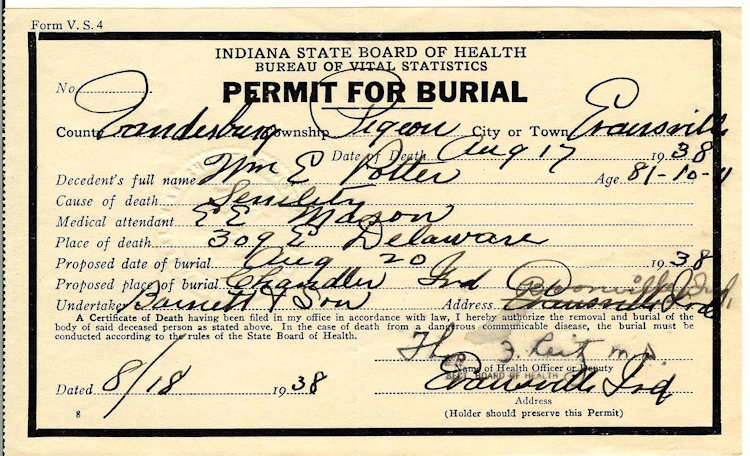 Form V. S. 4
INDIANA STATE BOARD OF HEALTH
BUREAU OF VITAL STATISTICS
No.
PERMIT FOR BURIAL
County Vanderburg Township Pigeon City or Town Evansville
Date of Death Aug 17 1938
Decedent's full name Wm E Potter Age 81-10-
Cause of death Senility
Medical attendant E E Mason
Place of death 309 E Delaware
Proposed date of burial Aug 20 1938
Proposed place of burial Chandler Ind Boonville, Ind.
Undertaker Barnett & Son Address Evansville Ind
A Certificate of Death having been filed in my office in accordance with law, I hereby authorize the removal and burial of the
body of said deceased person as stated above. In the case of death from a dangerous communicable disease, the burial must be
conducted according to the rules of the State Board of Health.
Name of Health Officer or Deputy
SECT. BOARD OF HEALTH
Evansville Ind
Dated 8/18 1938
Address
8
(Holder should preserve this Permit)